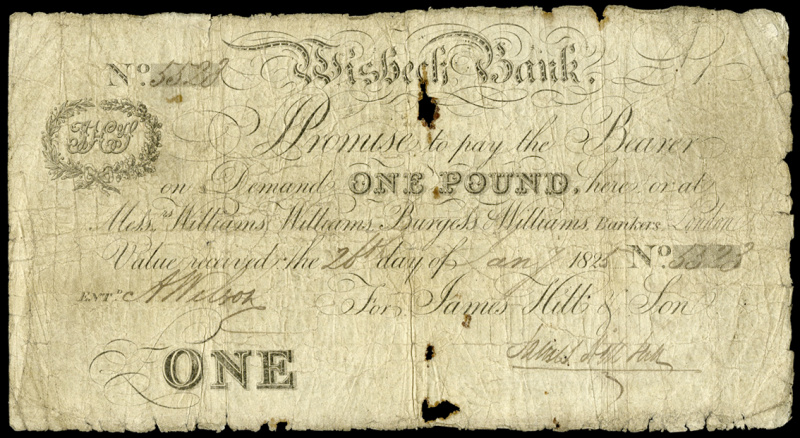 Wisbech Bank.
No. 5528
I Promise to pay the Bearer
on Demand ONE POUND, here or at
Messrs Williams, Williams, Burgess & Williams, Bankers, London
Value received the 26th day of Jany 1825 No. 5528
ENTd A Wilson
For James Hill & Son
ONE